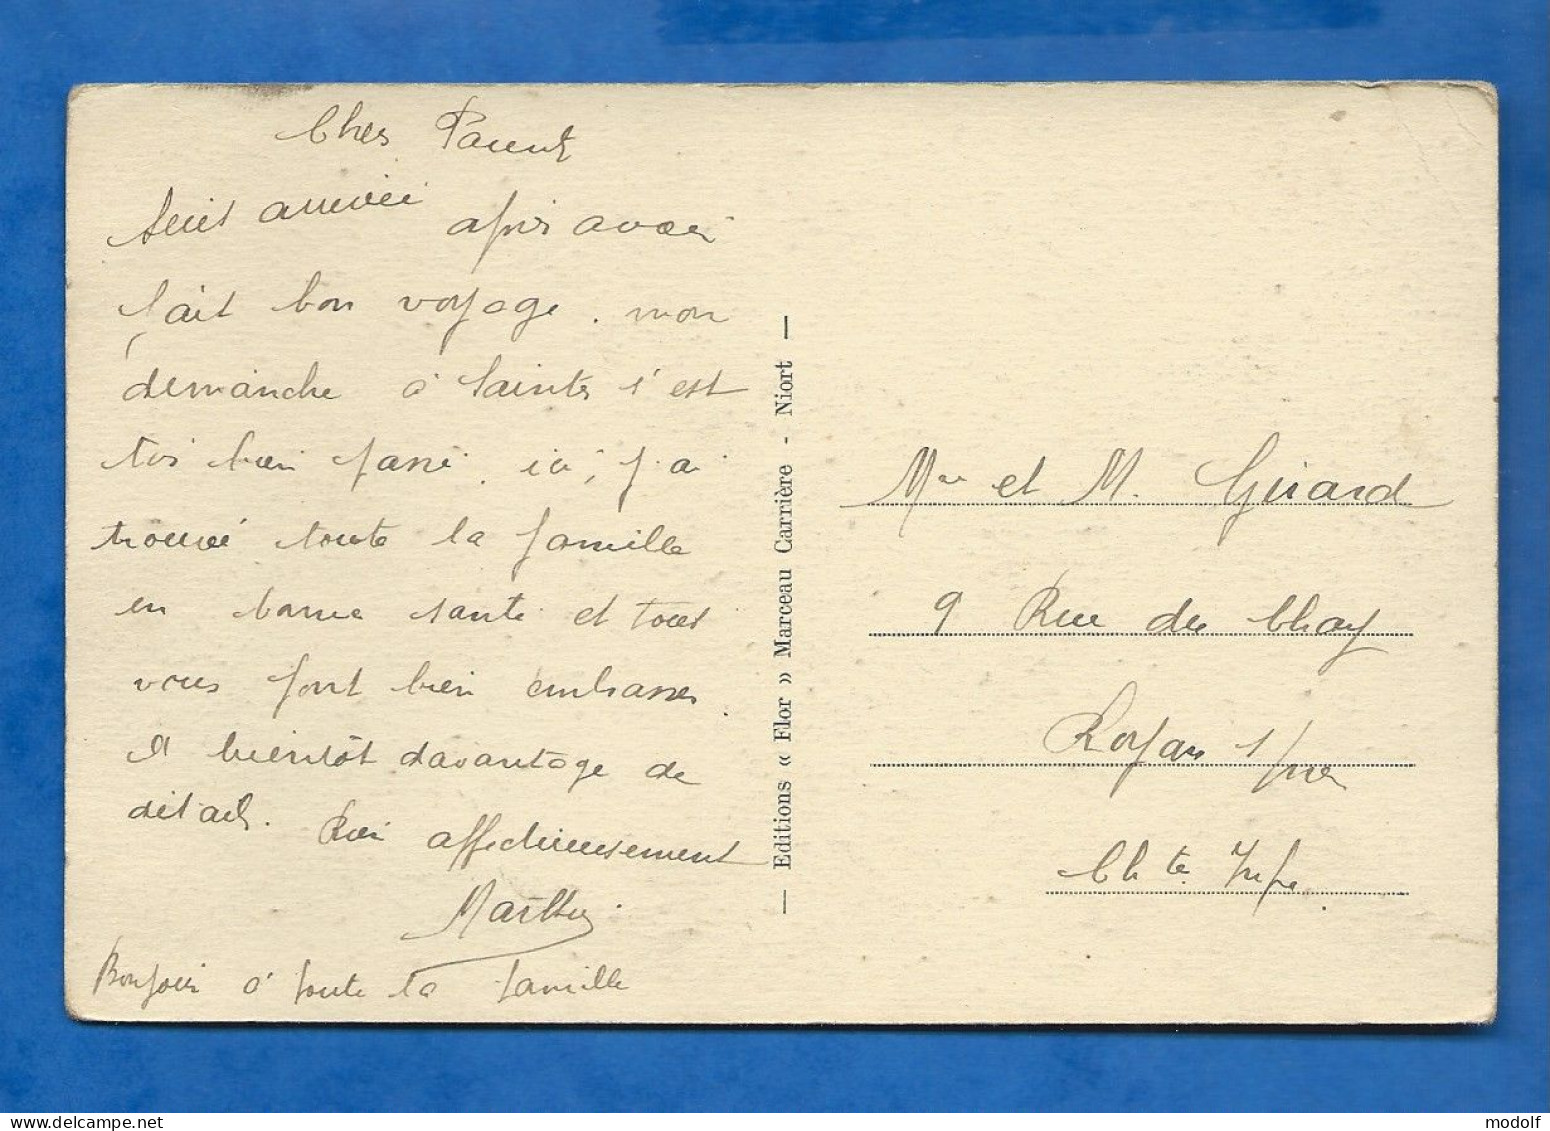 Chers Parents
suis arrivée après avoir
fait bon voyage. mon
dimanche à Saintes s'est
très bien passé. ici, j'ai
trouvé toute la famille
en bonne santé et tous
vous font bien embrasser.
A bientôt davantage de
détails. Bien affectueusement
Marthe.
Bonjour à toute la famille
— Editions « Flor » Marceau Carrière - Niort —
Mme et M. Girard
9 Rue du Chay
Royan s/mer
Chte Infre
modolf
www.delcampe.net